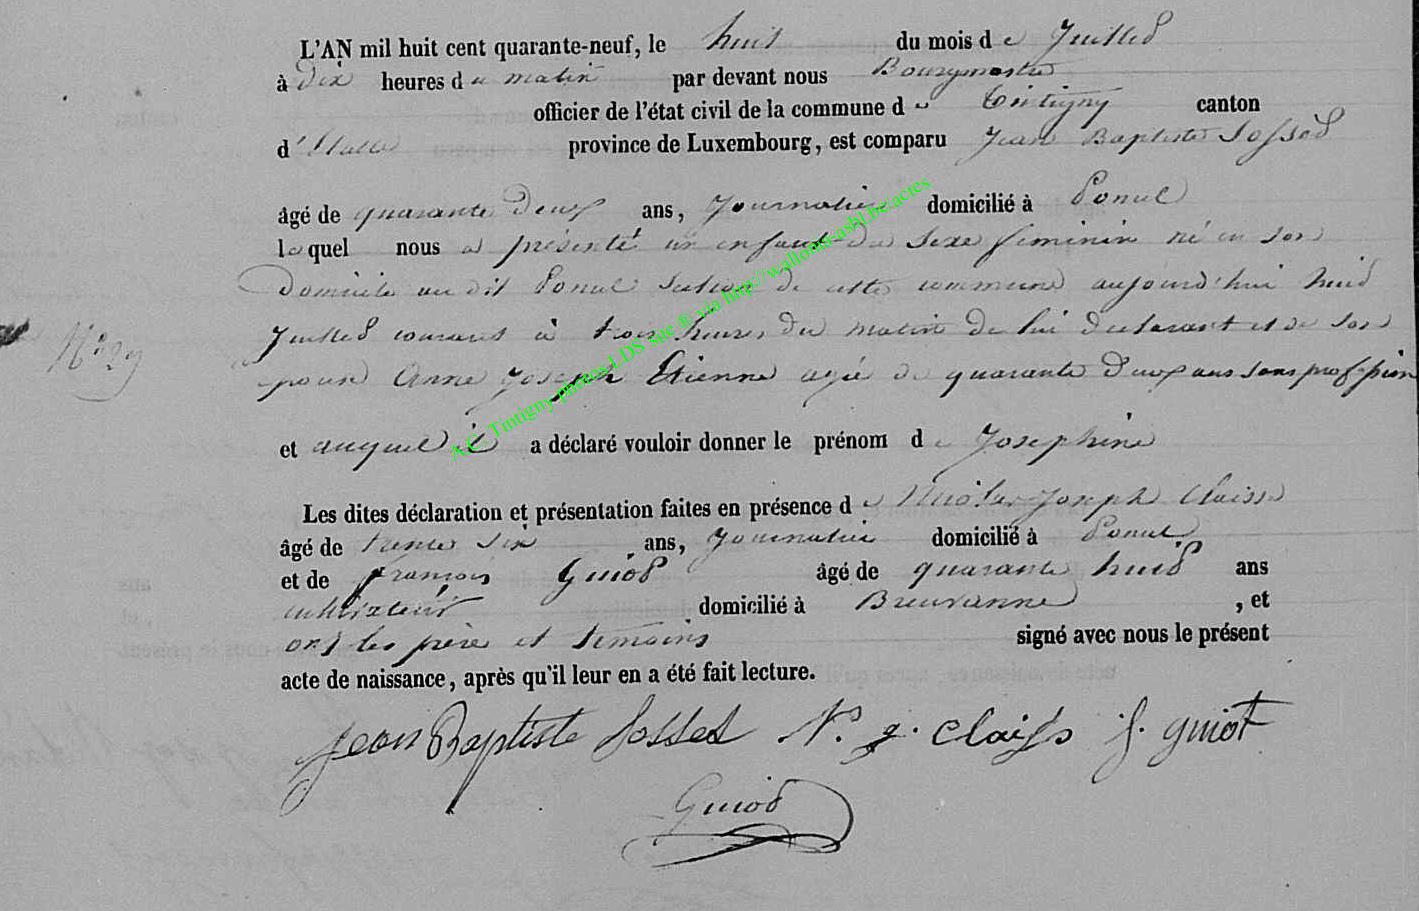 L'AN mil huit cent quarante-neuf, le huit du mois de Juillet
à dix heures du matin par devant nous Bourgmestre
officier de l'état civil de la commune de Tintigny canton
d'Etalle province de Luxembourg, est comparu Jean Baptiste Josset
âgé de quarante deux ans, Journalier domicilié à Ponul
lequel nous a présenté un enfant du sexe féminin né en son
Domicile au dit Ponul Section de cette commune aujourd'hui huit
Juillet courant à trois heures du matin de lui declarant et de son
Anne Joseph Etienne agée de quarante deux ans sans profession
N° 29
et auquel il a déclaré vouloir donner le prénom de Josephine
Les dites déclaration et présentation faites en présence de Nicolas Joseph Claisse
âgé de trente six ans, Journalier domicilié à Ponul
et de françois Guiot âgé de quarante huit ans
cultivateur domicilié à Breuvanne , et
ont les père et temoins signé avec nous le présent
acte de naissance, après qu'il leur en a été fait lecture.
Jean Baptiste Josset N. J. Claisse f. guiot
Guiot
A.C. Tintigny photos LDS site ® via http://wallonia-asbl.be/actes